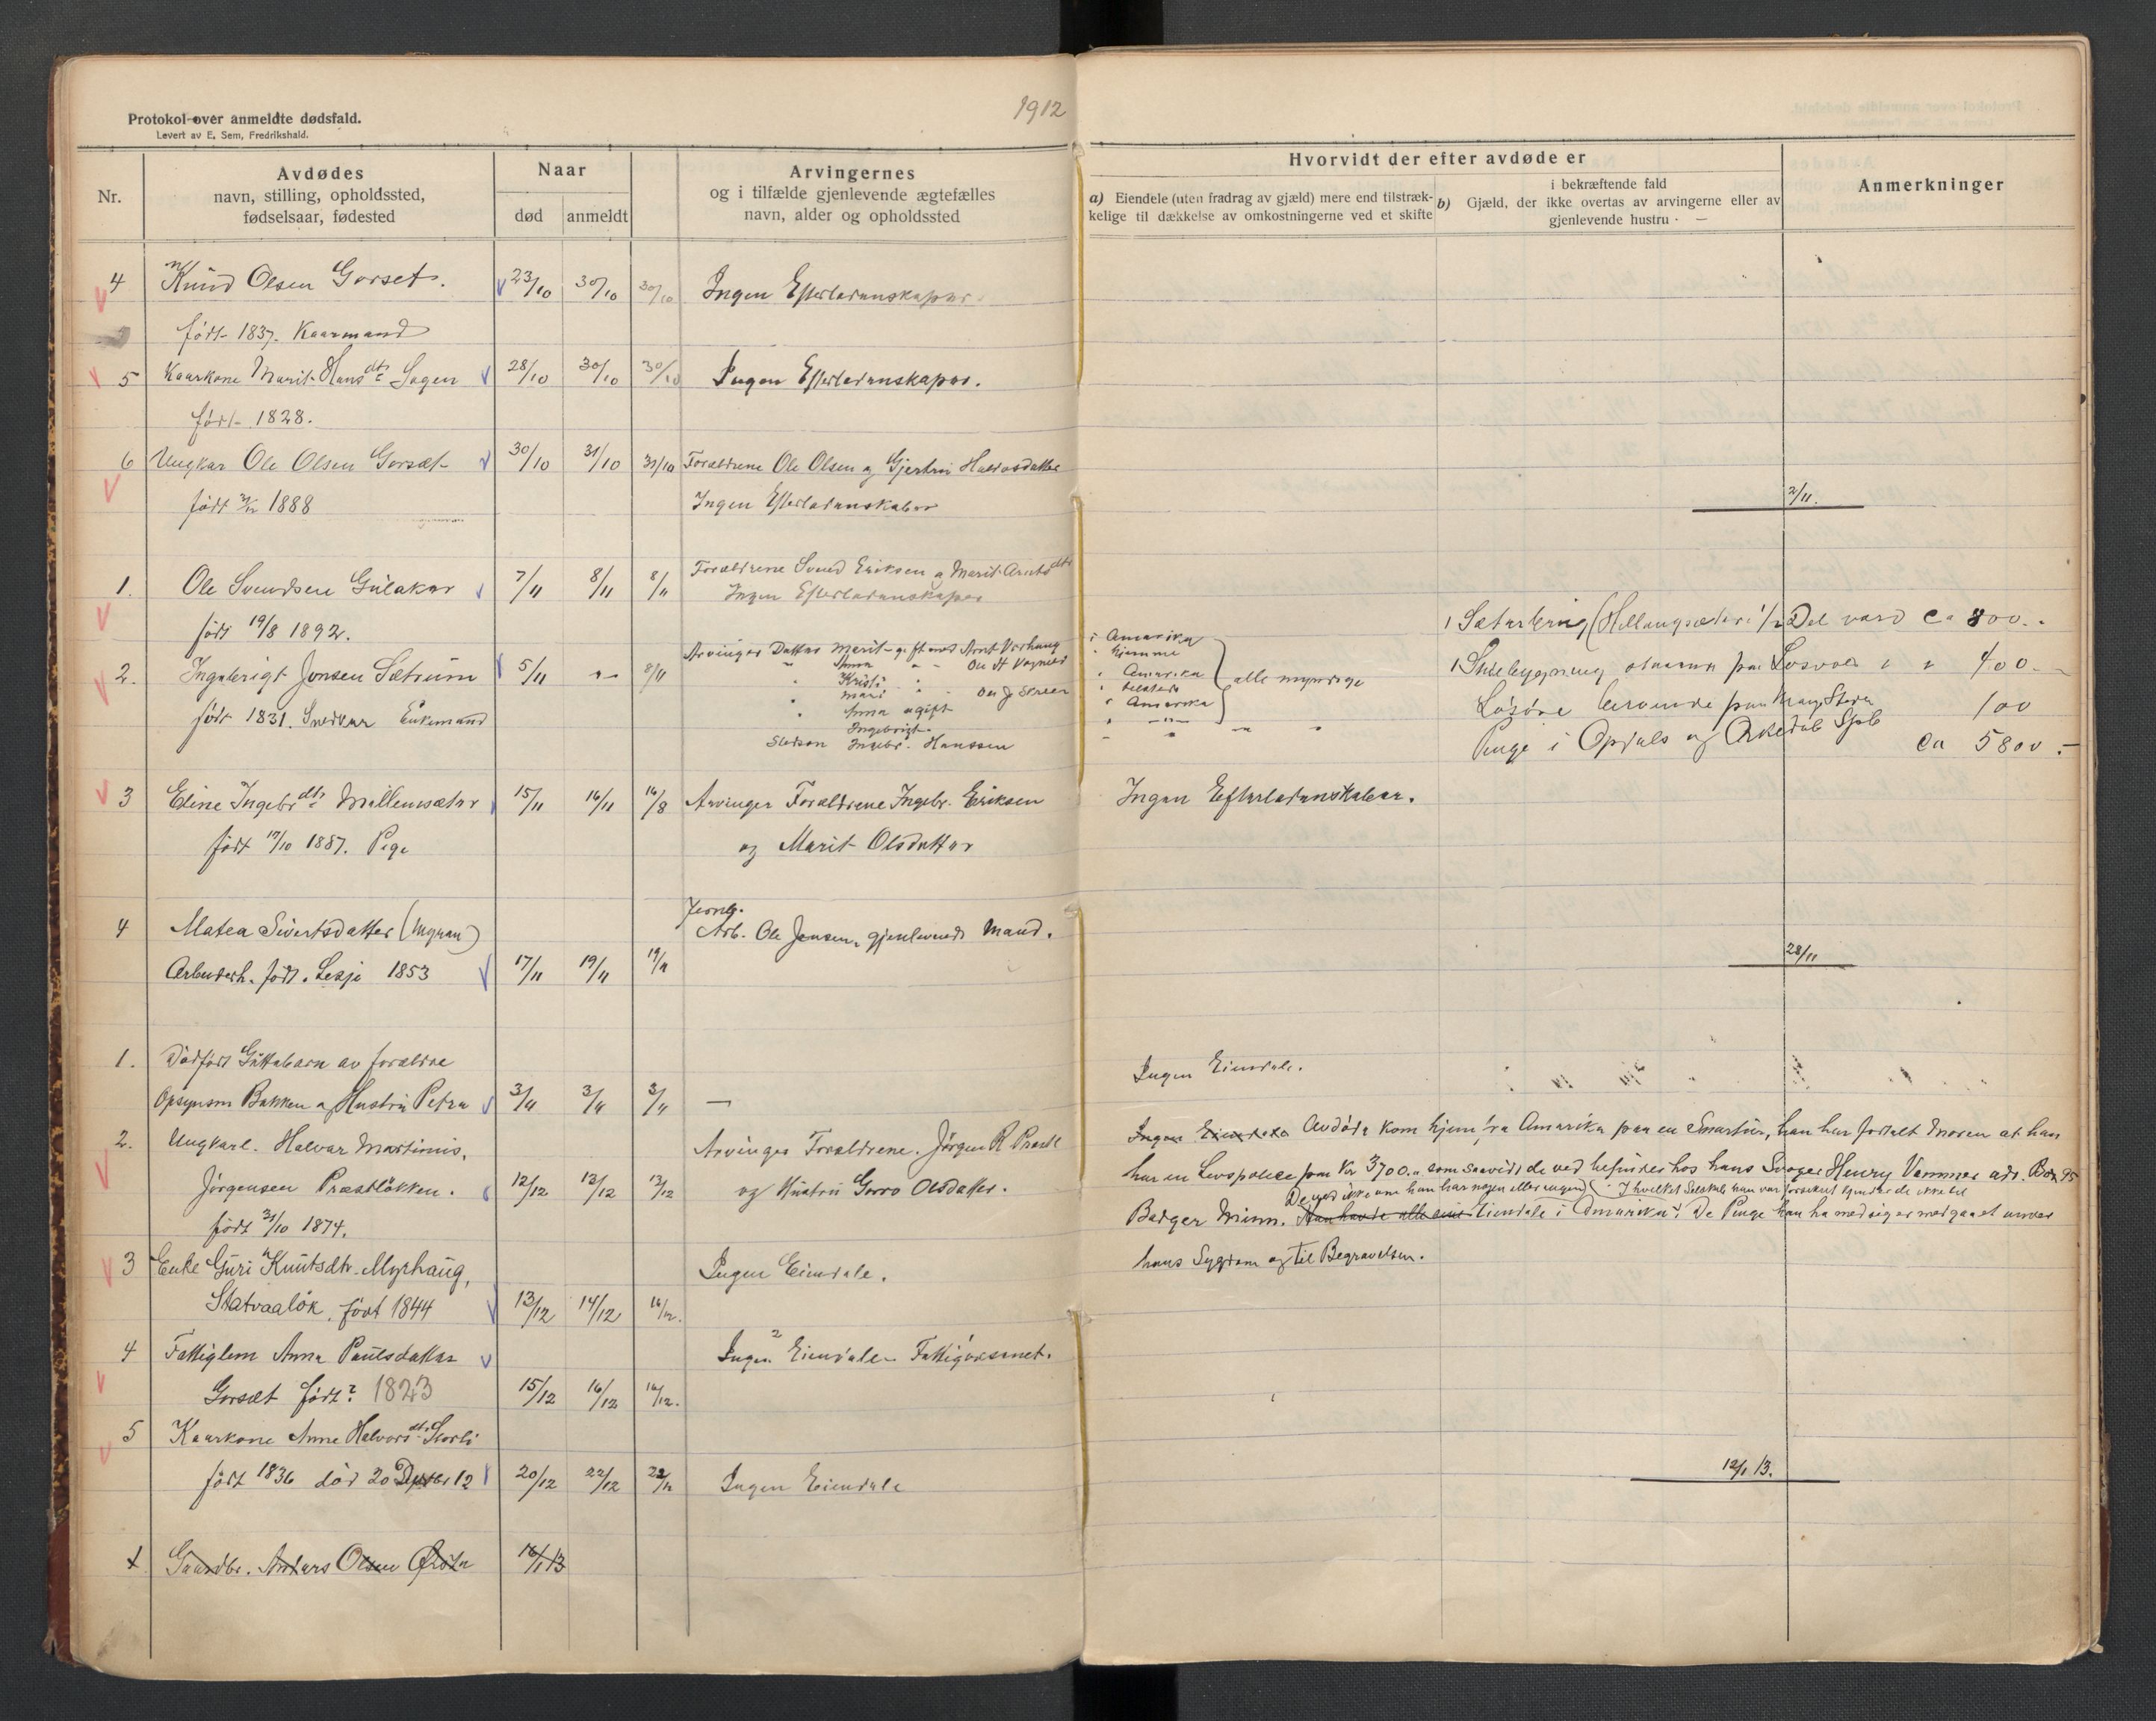 Protokol over anmeldte dødsfald.
Levert av E. Sem, Fredrikshald.
1912
Nr.
Avdødes
navn, stilling, opholdssted,
fødselsaar, fødested
Naar
død
anmeldt
Arvingernes
og i tilfælde gjenlevende ægtefælles
navn, alder og opholdssted
Hvorvidt der efter avdøde er
a) Eiendele (uten fradrag av gjæld) mere end tilstræk-
kelige til dækkelse av omkostningerne ved et skifte
i bekræftende fald
b) Gjæld, der ikke overtas av arvingerne eller av
gjenlevende hustru
Anmerkninger
4 Knud Olsen Gorset. 23/10 30/10 30/10 Ingen Efterladenskaper.
født 1837. Kaarmand
5 Kaarkone Marit Hansdtr Sagen 28/10 30/10 30/10 Ingen Efterladenskaper.
født 1828.
6 Ungkar Ole Olsen Gorset 30/10 31/10 31/10 Forældrene Ole Olsen og Gjertru Halvosdatter
født 1888 Ingen Efterladenskaber
2/11.
1. Ole Svendsen Gulaker 7/11 8/11 8/11 Forældrene Svend Eriksen og Marit Arntsdtr
Ingen Efterladenskaper
født 19/8 1892.
2. Ingebrigt Jonsen Sætrum 5/11 8/11
født 1831. Snedker Enkemand
Arvinger Datter Marit gift med Arnt
i Amerika
Anna
hjemme
Kristi
Amerika
Mari
Anna ugift
Amerika
Ingebrigt
Stedsøn Ingebr. Hanssen
alle myndige
1 Sæterbring 1/2 Del værd ca 800.-
400.-
Løsøre 100
Penge i Opdals og Orkedal Spb ca 5800.-
3 Eline Ingebrdtr Mellemsæter 15/11 16/11 16/8 Arvinger Forældrene Ingebr. Eriksen
født 17/10 1887. Pige og Marit Olsdatter
Ingen Efterladenskaber.
4 Matea Sivertsdatter (Mgrau)
Arb. Ole Jensen, gjenlevende Mand.
født. Lesje 1853 17/11 19/11 19/11
28/11
1. Dødfødt Guttebarn av forældre
Opsynsm Bakken og Hustru Petra 3/11 3/11 3/11 —
Ingen Eiendele.
2. Ungkarl. Halvar Martinus,
Jörgensen Præstløkken. 12/12 13/12 13/12
født 31/10 1874.
Arvinger Forældrene. Jörgen R Præstl
og Hustru Gorro Olsdatter.
Ingen Eiendele Avdøde kom hjem fra Amerika paa en Smartur, han har fortalt Moren at han
har en Livspolice paa Kr 3700.- som saavidt de ved befindes hos hans Svoger Henry Vammer adr. Box 95
De ved ikke om han har nogen eller ingen I hvilket Selskab han var forsikret kjender de ikke til
Badger Minn. Han havde Eiendele i Amerika. De Penge han ha med sig er medgaaet under
hans Sygdom og til Begravelsen.
3 Enke Guri Knutsdtr Myrhaug,
Statvaaløk, født 1844 13/12 14/12 16/12.
Ingen Eiendele.
4 Fattiglem Anna Paulsdatter
Gorset født? 1823 15/12 16/12 16/12.
Ingen Eiendele. Fattigvæsenet.
5 Kaarkone Anne Halvorsdtr Storli
født 1836 død 20 Desbr 12 20/12 22/12 22/12 Ingen Eiendele
12/1 13.
1 Gaardbr. Anders Olsen 16/1 13